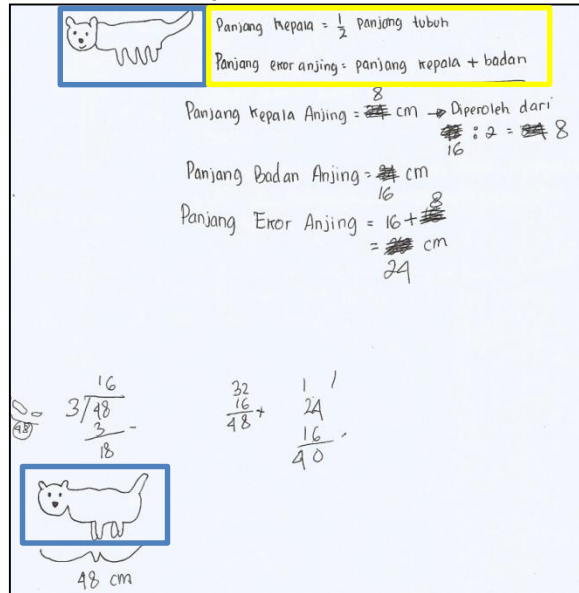 Panjang kepala = 1/2 panjang tubuh
Panjang ekor anjing = panjang kepala + badan
8
Panjang kepala Anjing = cm → Diperoleh dari
: 2 = 8
16
Panjang Badan Anjing = cm
16
8
Panjang Ekor Anjing = 16 +
= cm
24
16
3/48
3 -
18
32
16 +
48
1 1
24
16
40
48
48 cm